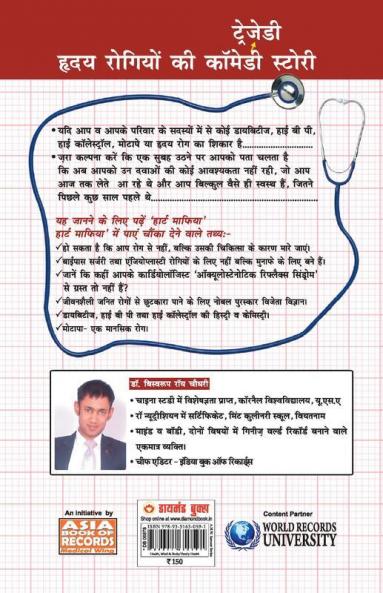 ट्रेजेडी
हृदय रोगियों की कॉमेडी स्टोरी
• यदि आप व आपके परिवार के सदस्यों में से कोई डायबिटीज, हाई बी पी,
हाई कॉलेस्ट्रॉल, मोटापे या हृदय रोग का शिकार है....................
• ज़रा कल्पना करें कि एक सुबह उठने पर आपको पता चलता है
कि अब आपको उन दवाओं की कोई आवश्यकता नहीं रही, जो आप
आज तक लेते आ रहे थे और आप बिल्कुल वैसे ही स्वस्थ हैं, जितने
पिछले कुछ साल पहले थे....................
यह जानने के लिए पढ़ें 'हार्ट माफिया'
हार्ट माफिया' में पाएं चौंका देने वाले तथ्य:-
✓हो सकता है कि आप रोग से नहीं, बल्कि उसकी चिकित्सा के कारण मारे जाएं।
✓बाईपास सर्जरी तथा एंजियोप्लास्टी रोगियों के लिए नहीं बल्कि मुनाफे के लिए बने हैं।
✓जानें कि कहीं आपके कार्डियोलॉजिस्ट 'ऑक्यूलोस्टेनोटिक रिफ्लैक्स सिंड्रोम'
से ग्रस्त तो नहीं हैं?
✓जीवनशैली जनित रोगों से छुटकारा पाने के लिए नोबल पुरस्कार विजेता विज्ञान।
✓डायबिटीज, हाई बी पी तथा हाई कॉलेस्ट्रॉल की हिस्ट्री व केमिस्ट्री।
✓मोटापा- एक मानसिक रोग।
डॉ. बिस्वरूप रॉय चौधरी
• चाइना स्टडी में विशेषज्ञता प्राप्त, कॉरनैल विश्वविद्यालय, यू.एस.ए
• रॉ न्यूट्रीशियन में सर्टिफिकेट, मिंट कूलीनरी स्कूल, वियतनाम
• माइंड व बॉडी, दोनों विषयों में गिनीज़ वर्ल्ड रिकॉर्ड बनाने वाले
एकमात्र व्यक्ति।
• चीफ एडिटर - इंडिया बुक ऑफ रिकार्ड्स
An Initiative by
ASIA
BOOK OF
RECORDS
Medical Wing
डायमंड बुक्स
Shop online at www.diamondbook.in
₹ 150
Content Partner
WORLD RECORDS
UNIVERSITY